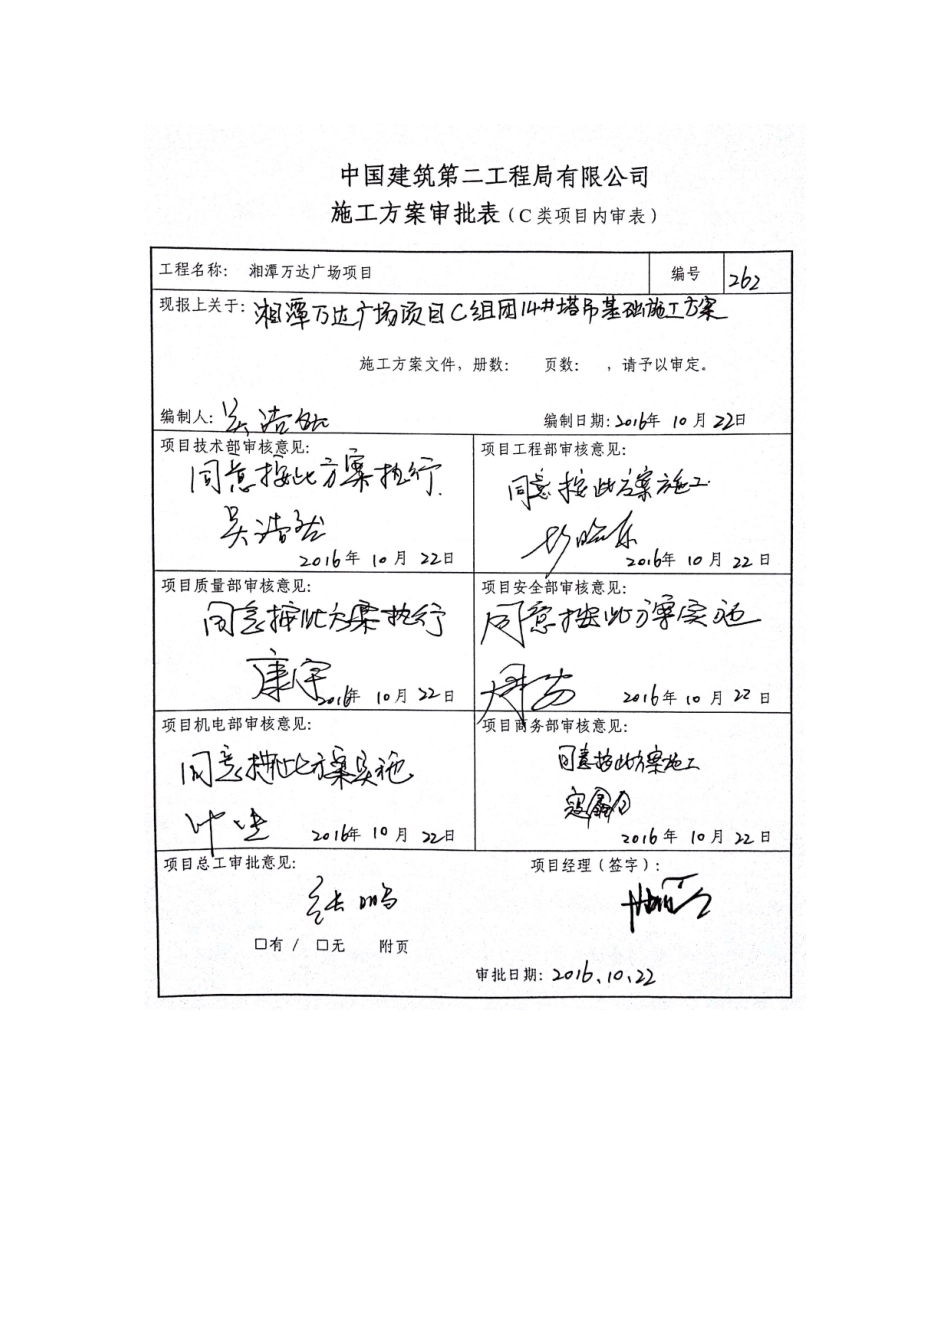 中国建筑第二工程局有限公司
施工方案审批表（C类项目内审表）
工程名称： 湘潭万达广场项目 编号 262
现报上关于：湘潭万达广场项目C组团14#塔吊基础施工方案
施工方案文件，册数： 页数： ，请予以审定。
编制人：吴浩 编制日期：2016年10月22日
项目技术部审核意见：
同意按此方案执行.
吴浩
2016年10月22日
项目工程部审核意见：
同意按此方案施工
2016年10月22日
项目质量部审核意见：
同意按此方案执行
康宇
2016年10月22日
项目安全部审核意见：
同意按此方案实施
2016年10月22日
项目机电部审核意见：
同意按此方案实施
叶
2016年10月22日
项目商务部审核意见：
同意按此方案施工
2016年10月22日
项目总工审批意见：
□有 / □无 附页
项目经理（签字）：
审批日期：2016.10.22